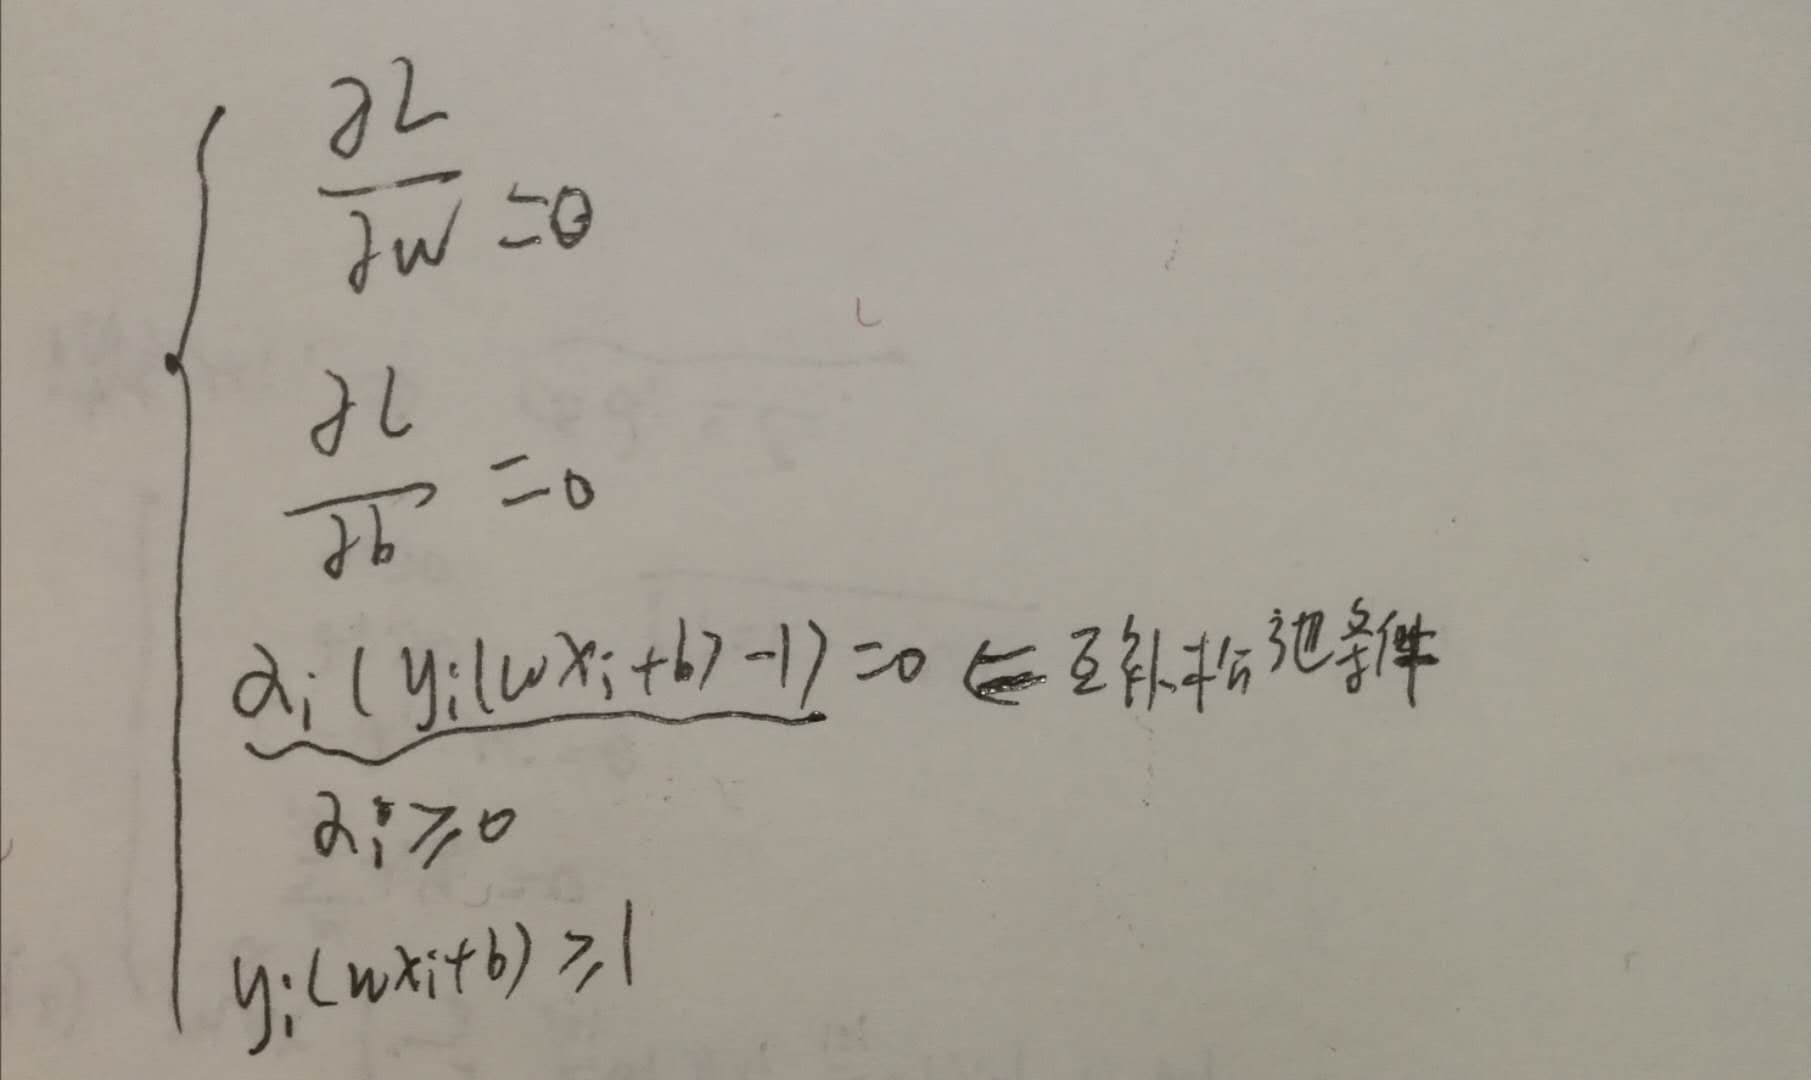 ∂L/∂w =0
∂L/∂b =0
αi(yi(wxi+b)-1)=0 ⇐ 互补松弛条件
αi≥0
yi(wxi+b)≥1